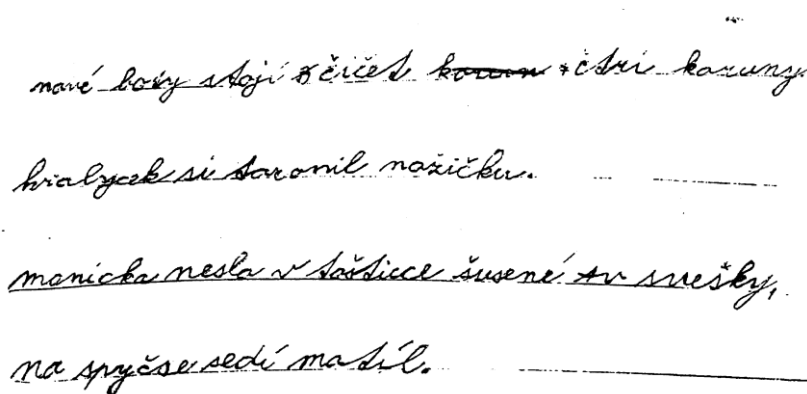 nové boty stojí čičet korun čtri koruny.
hralycek si taronil nožičku.
manicka nesla v tašticce šusené sv svešky,
na spyčse sedí matíl.